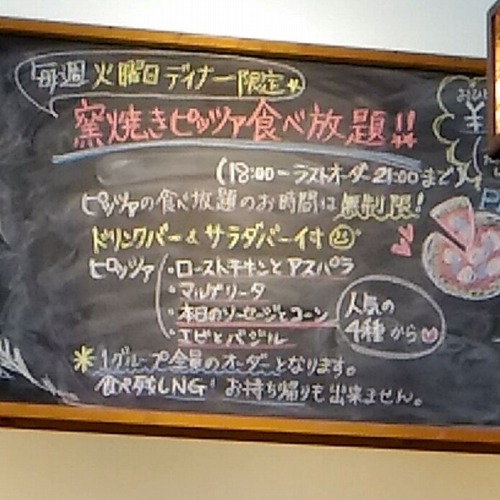 毎週 火曜日ディナー限定
窯焼きピッツァ食べ放題!!
おひと
(18:00-ラストオーダー21:00まで)
ピッツァの食べ放題のお時間は無制限!
ドリンクバー&サラダバー付
ピッツァ ・ローストチキンとアスパラ
・マルゲリータ
・本日のソーセージとコーン
・エビとバジル
人気の
4種から
*1グループ全員のオーダーとなります。
食べ残しNG! お持ち帰りも出来ません。